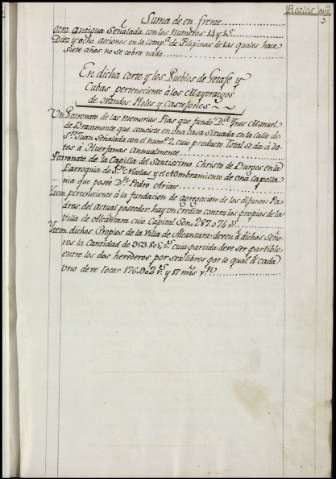 Reales
Suma de en frente
otra antigua señalada con los numeros 14 y 15
Diez y ocho acciones en la comp.ª de Filipinas de las quales hace
siete años no se cobra nada
En dicha Corte y los Pueblos de Getafe y
Cubas perteneciente á los Mayorazgos
de Aranda Robles y Castrejones
Un Patronato de las memorias Pias que fundó D.ª Ines Manuel
de Bracamonte que consiste en una Casa situada en la calle de
S.n Juan señalada con el num.º 2, cuio producto Total se dá á do
tes á Huerfanas Annualmente
Patronato de la Capilla del Santissimo Christo de Burgos en la
Parroquia de S.n Nicolas y el nombramiento de una Capella
nia que posee D.n Pedro Arias
Itten perteneciente á la fundacion de agregacion de los
dres del actual poseedor hay un credito contra los propios de la
villa de Alcantara cuio Capital son
Itten dichos Propios de la Villa de Alcantara deven á dichos Seño
res la Cantidad de cuia partida deve ser partible
entre los dos herederos por ser libres por lo qual á cada
uno deve tocar y 17 mrs